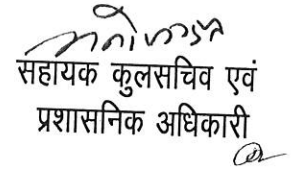 सहायक कुलसचिव एवं
प्रशासनिक अधिकारी